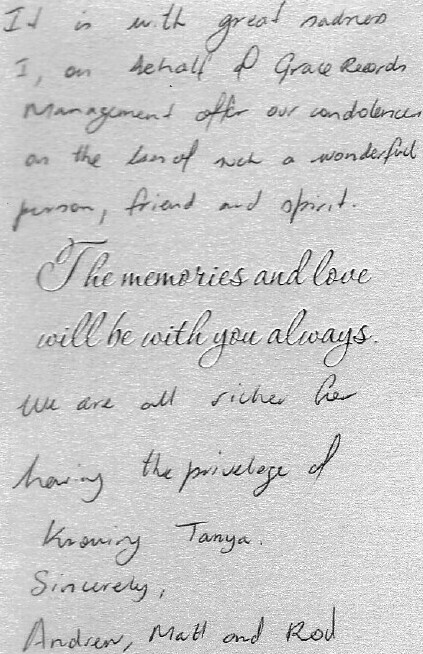 It is with great sadness
I, on behalf of Grace Records
Management offer our condolences
on the loss of such a wonderful
person, friend and spirit.
The memories and love
will be with you always.
We are all richer for
having the privelege of
Knowing Tanya.
Sincerely,
Andrew, Matt and Rod